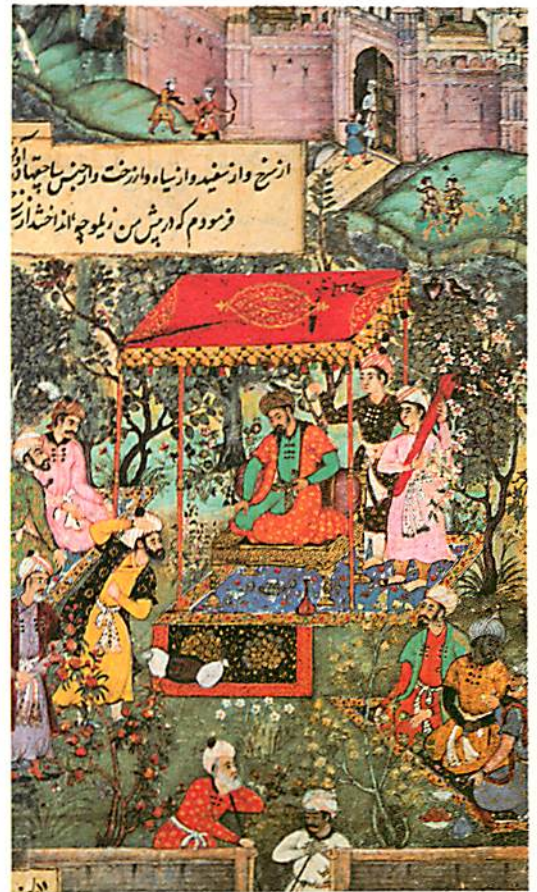 از سرخ و از سفید و از سیاه و از رخت و از جنس ساچقها
فرمودم که در پیش من زیلوچه انداختند